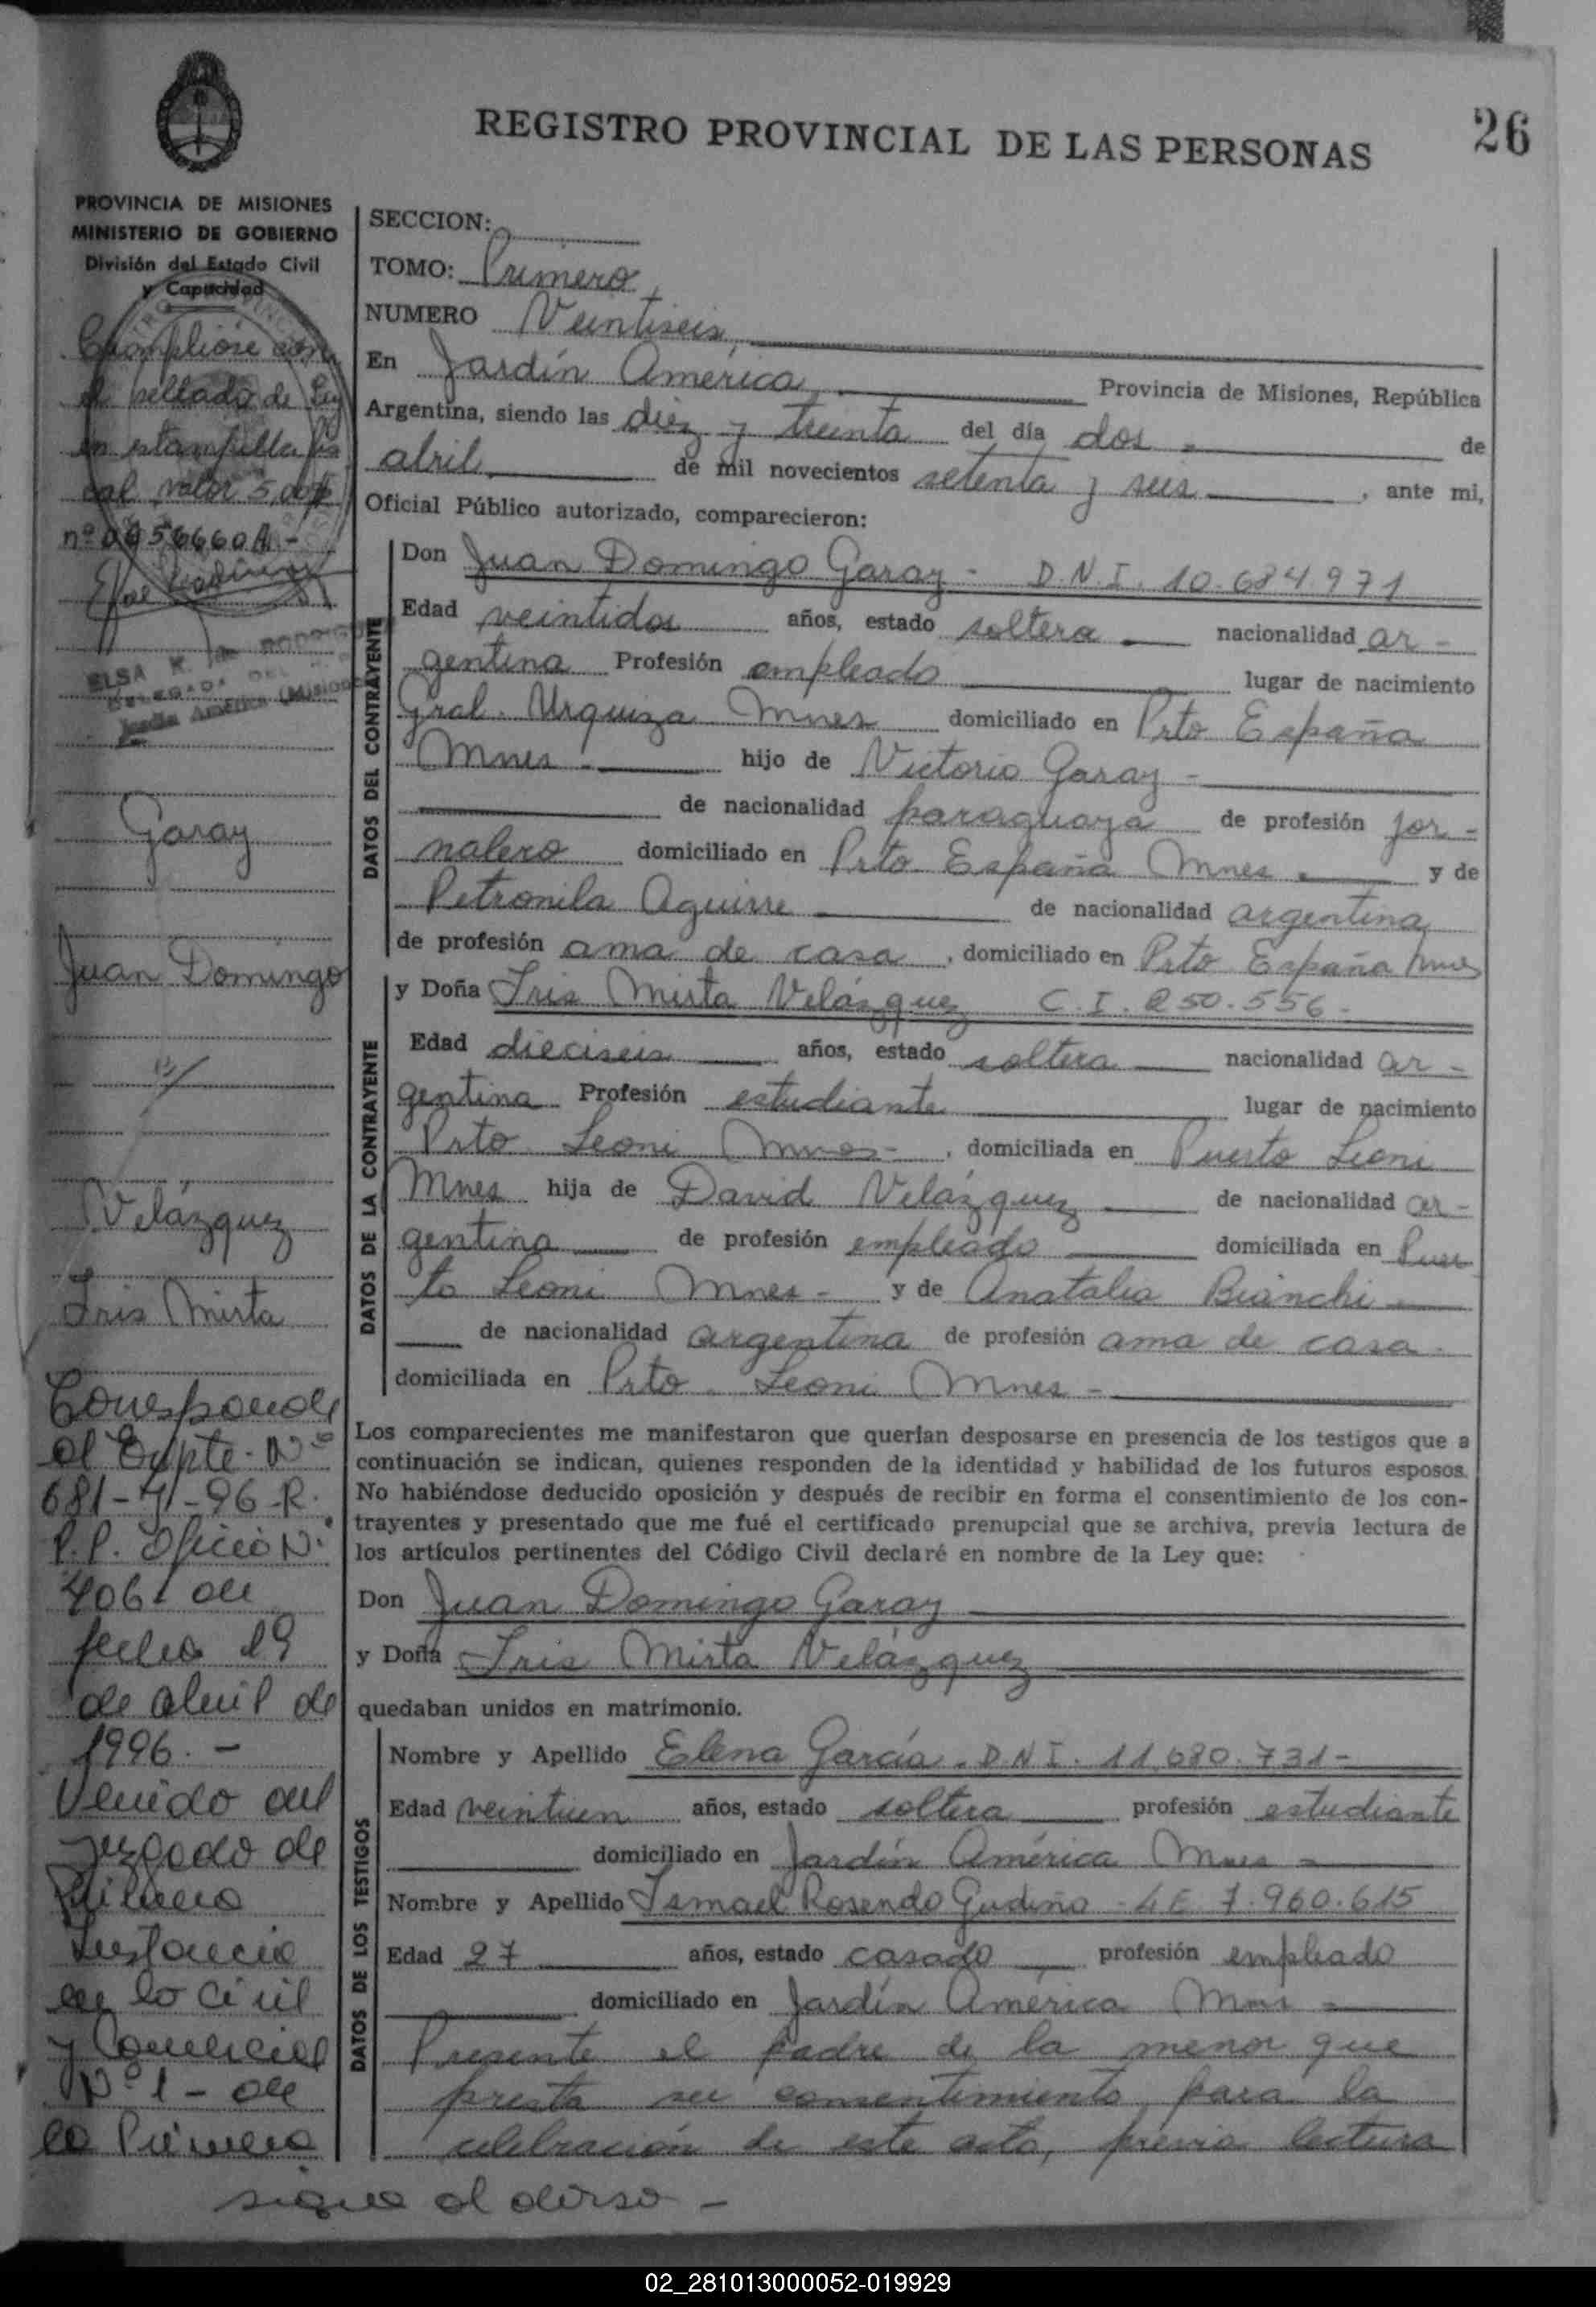 REGISTRO PROVINCIAL DE LAS PERSONAS
26
PROVINCIA DE MISIONES
MINISTERIO DE GOBIERNO
División del Estado Civil
y Capacidad
Cumplióse con
el sellado de Ley
en estampilla fis
cal valor 5,00
ELSA
Jardín América (Misiones)
Garay
Juan Domingo
y/
Velázquez
Iris Mirta
Corresponde
al Expte. Nº
681-71-96-R.
P.P. Oficio N°
406 de
fecha 19
de abril de
1996.-
Venido del
Juzgado de
Primera
Instancia
en lo Civil
y Comercial
Nº 1 - de
la Primera
SECCION:
TOMO: Primero
NUMERO Veintiseis
En Jardín América Provincia de Misiones, República
Argentina, siendo las diez y treinta del día dos de
abril de mil novecientos setenta y seis, ante mi,
Oficial Público autorizado, comparecieron:
DATOS DEL CONTRAYENTE
Don Juan Domingo Garay - D.N.I. 10.684.971
Edad veintidos años, estado soltera nacionalidad ar-
gentina Profesión empleado lugar de nacimiento
Gral. Urquiza Mnes domiciliado en Prto España
Mnes - hijo de Victorio Garay -
de nacionalidad paraguaya de profesión jor-
nalero domiciliado en Prto España Mnes y de
Petronila Aguirre de nacionalidad argentina
de profesión ama de casa, domiciliado en Prto España Mnes
DATOS DE LA CONTRAYENTE
y Doña Iris Mirta Velázquez C.I. 250.556-
Edad dieciseis años, estado soltera nacionalidad ar-
gentina Profesión estudiante lugar de nacimiento
Prto Leoni Mnes-, domiciliada en Puerto Leoni
Mnes hija de David Velázquez de nacionalidad ar-
gentina de profesión empleado domiciliada en Puer
to Leoni Mnes- y de Anatalia Bianchi
de nacionalidad argentina de profesión ama de casa.
domiciliada en Prto. Leoni Mnes-
Los comparecientes me manifestaron que querían desposarse en presencia de los testigos que a
continuación se indican, quienes responden de la identidad y habilidad de los futuros esposos.
No habiéndose deducido oposición y después de recibir en forma el consentimiento de los con-
trayentes y presentado que me fué el certificado prenupcial que se archiva, previa lectura de
los artículos pertinentes del Código Civil declaré en nombre de la Ley que:
Don Juan Domingo Garay
y Doña Iris Mirta Velázquez
quedaban unidos en matrimonio.
DATOS DE LOS TESTIGOS
Nombre y Apellido Elena García. D.N.I. 11.680.731-
Edad veintiun años, estado soltera profesión estudiante
domiciliado en Jardín América Mnes
Nombre y Apellido Ismael Rosendo Gudiño - L E 7.960.615
Edad 27 años, estado casado profesión empleado
domiciliado en Jardín América Mnes
Presente el padre de la menor que
presta su consentimiento para la
celebración de este acto, previa lectura
sigue al dorso -
02_281013000052-019929